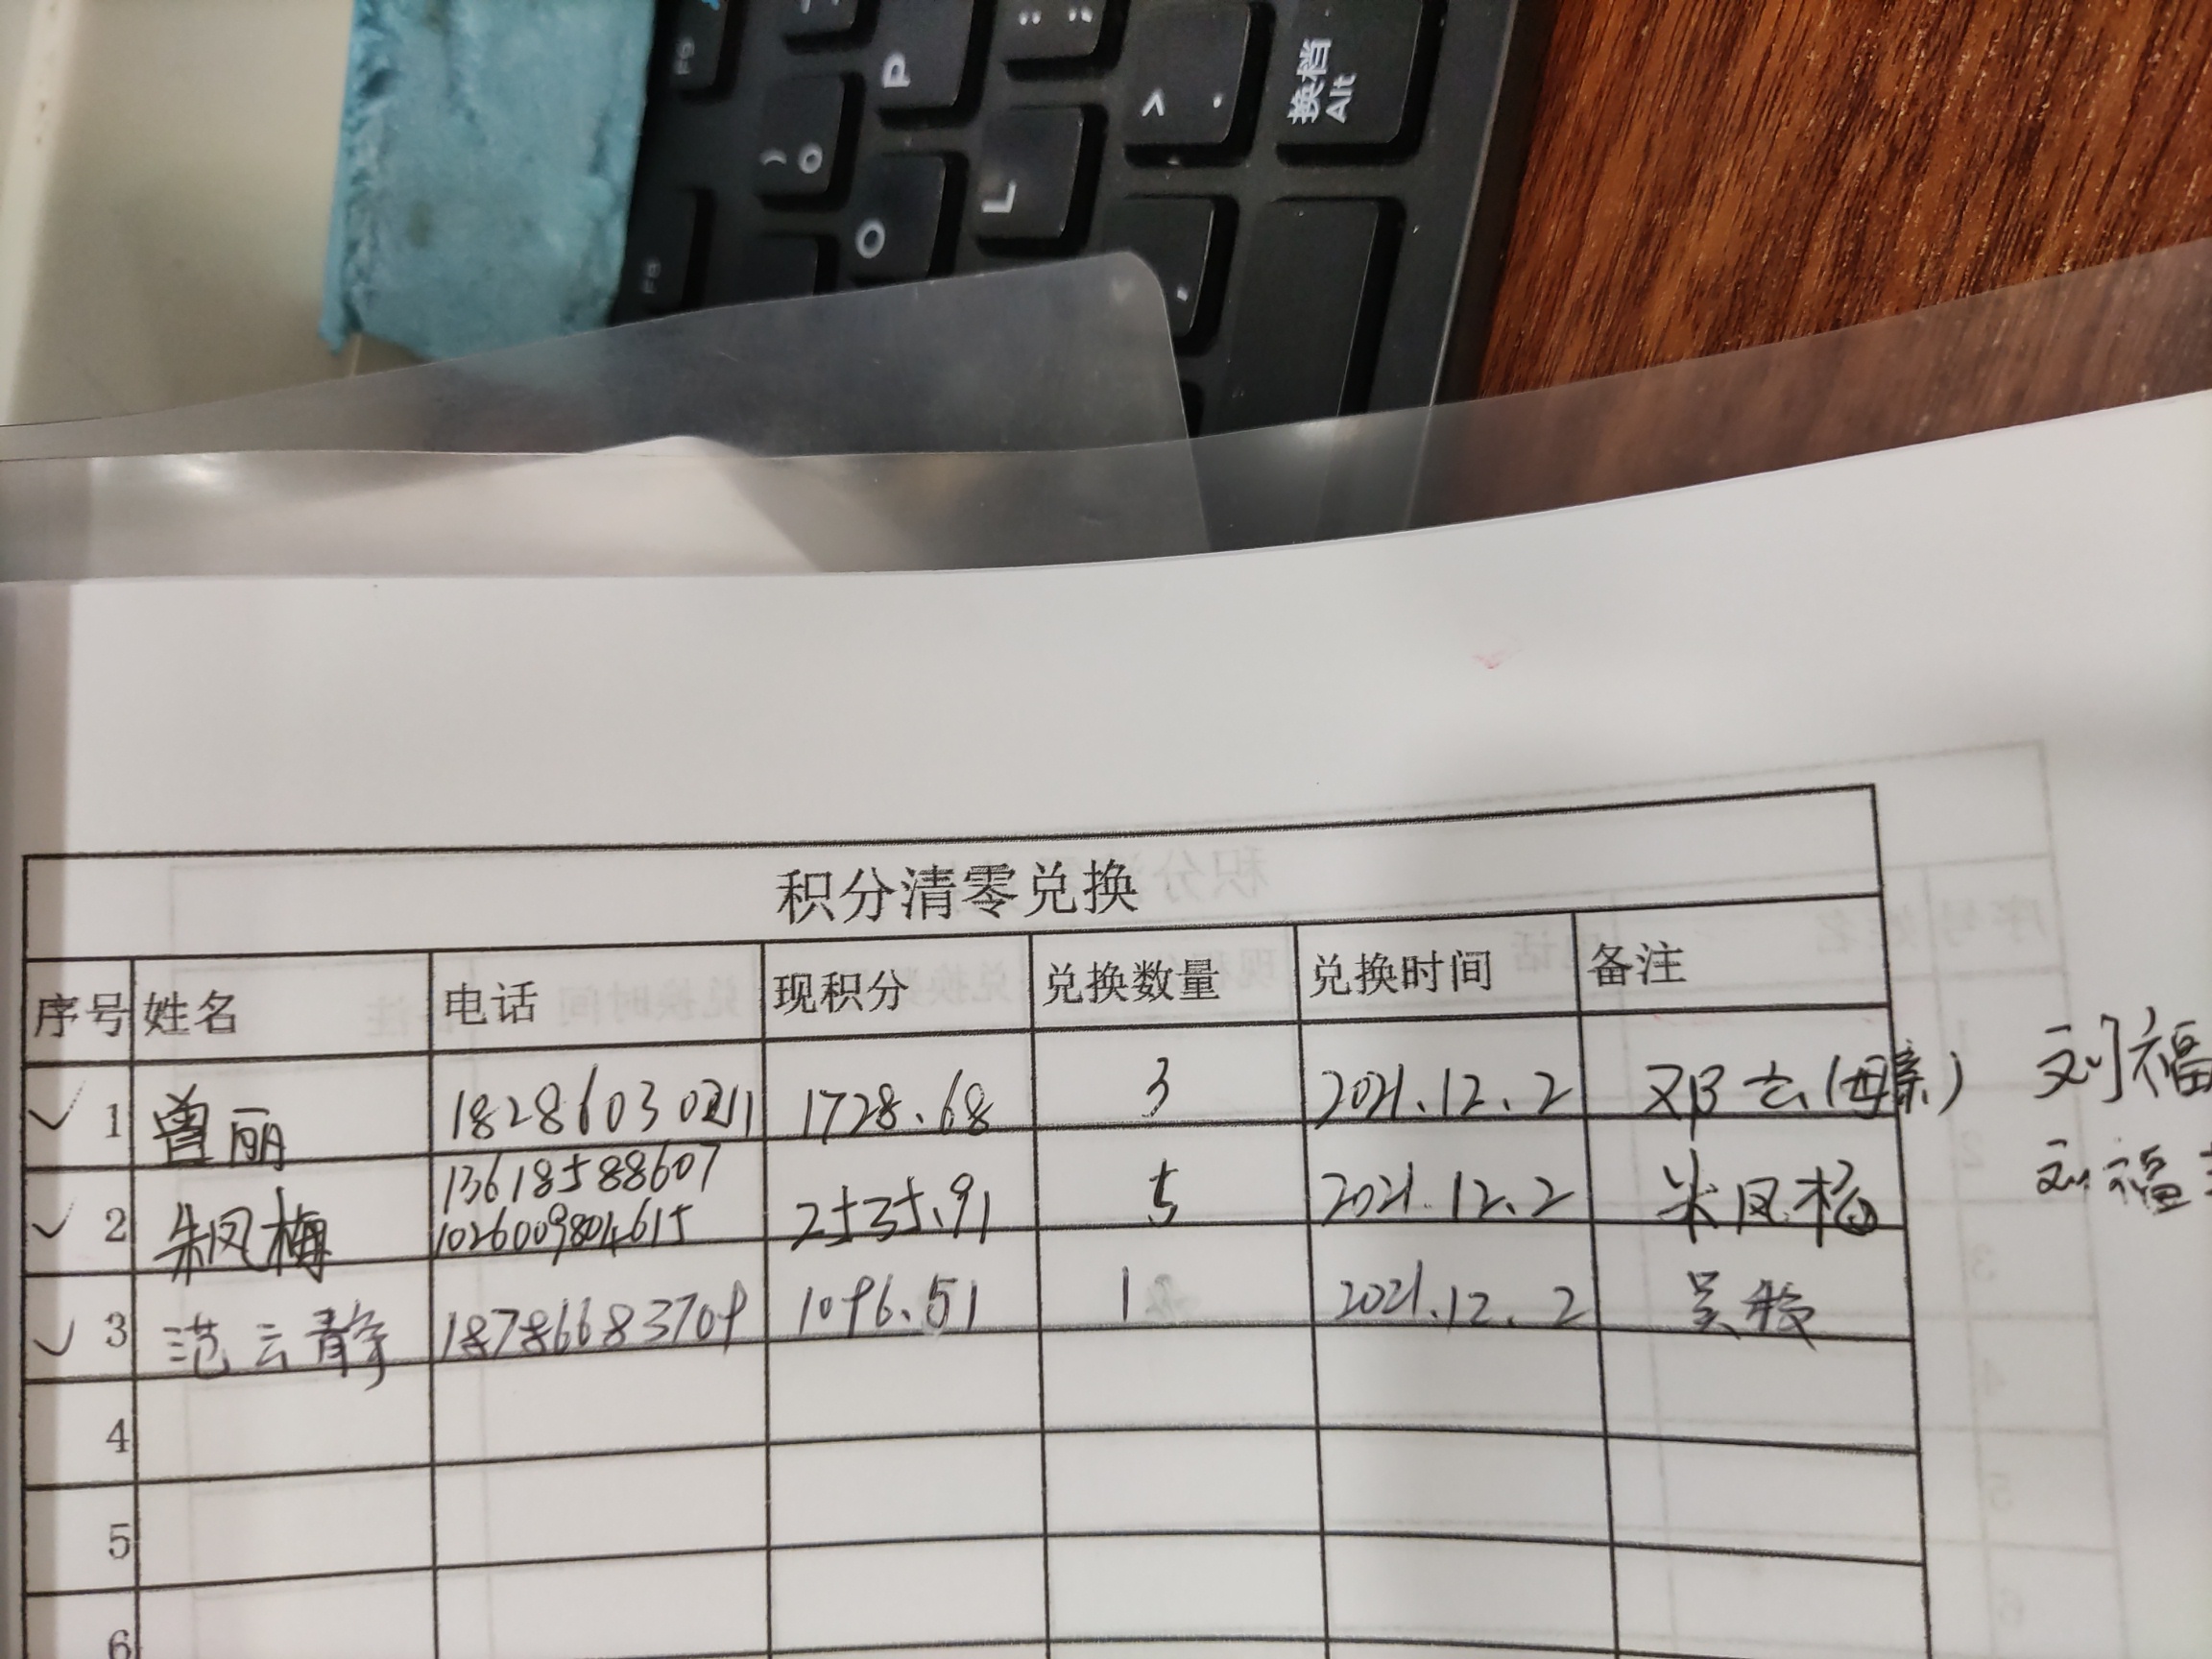 F9
P
: ;
> .
换档
Alt
) 0
L
O
F8
,
积分清零兑换
序号 姓名 电话 现积分 兑换数量 兑换时间 备注
✓ 1 曾丽 1728.68 3 2021.12.2 邓云(母亲) 刘福
13618588607
✓ 2 朱凤梅 1026009804615 2535.91 5 2021.12.2 朱凤梅 刘福
✓ 3 范云静 18786683709 1096.51 1 2021.12.2 吴
4
5
6